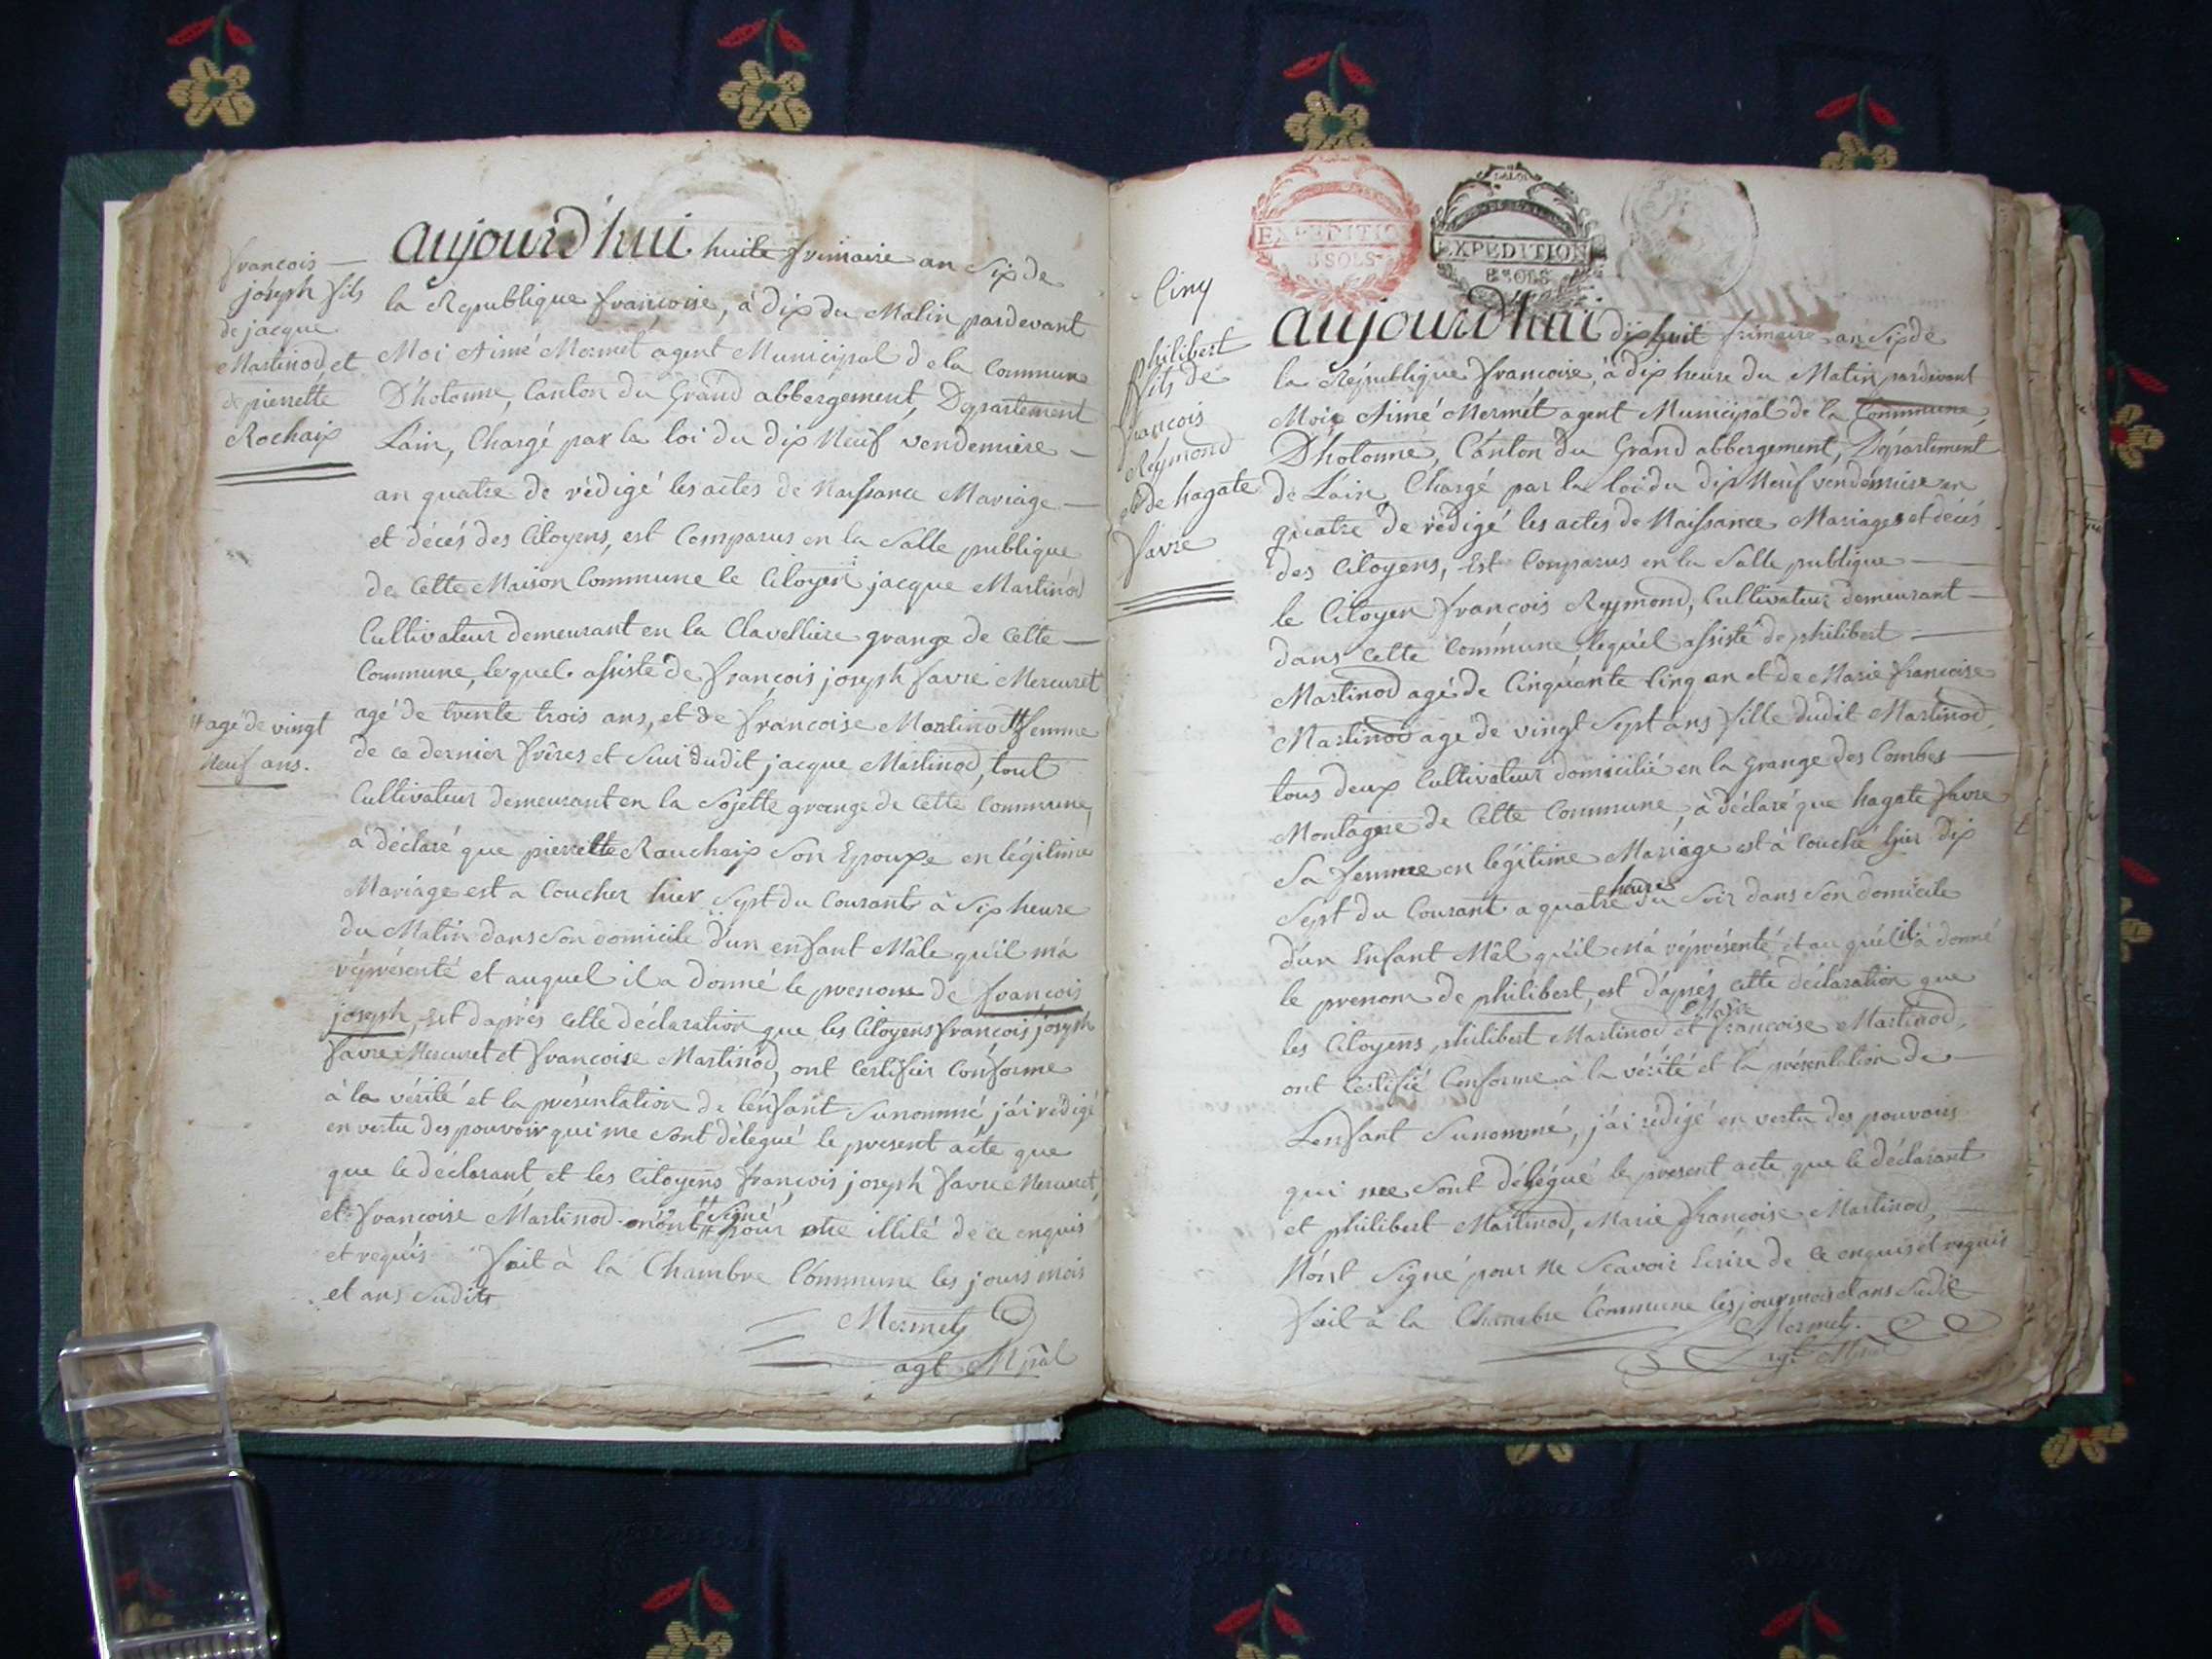 françois
joseph fils
de jacque
Martinod, et
de pierrette
Rochaix
aujourd'huiy huite frimaire an Six de
la Republique françoise, à dix du Matin pardevant
Moi Aimé Mermet agent Municipal de la Commune
D'hotonne, Canton du Grand abbergement, Departement
Lain, Chargé par la loi du dix Neuf vendemiere
an quatre de rédigé les actes de Naissance Mariage
et décés des Citoyens, est Comparus en la Salle publique
de Cette Maison Commune le Citoyen jacque Martinod
Cultivateur demeurant en la Clavelliere grange de Cette
Commune, lequel assisté de françois joseph favre Mercuret
agé de trente trois ans, et de françoise Martinod # femme
# agé de vingt
Neuf ans.
de ce dernier frêres et Seur dudit jacque Martinod, tout
Cultivateur demeurant en la Sojette grange de Cette Commune,
à déclaré que pierrette Rauchaix Son Epouxe en légitime
Mariage est a Coucher hier Sept du Courant à Six heure
du Matin dans Son domicile d'un enfant Mâle qu'il m'a
réprésenté et auquel il a donné le prenom de françois
joseph, est d'aprés Cette déclaration que les Citoyens françois joseph
favre Mercuret et françoise Martinod, ont Certifier Conforme
à la vérité et la présentation de l'enfant Sunommé j'ai rédigé
en vertu des pouvoir qui me Sont délegué le present acte que
que le déclarant et les Citoyens françois joseph favre Mercuret,
et françoise Martinod n'ont # Signé pour etre illité de ce enquis
et requis fait à la Chambre Commune les jours mois
et ans Sudits
Mermet
agt Mpal
EXPEDITIO
8 SOLS
LA LOI
EXPEDITION
8 SOLS
Cinq
philibert
fils de
françois
Reymond
et de hagate
favre
aujourd'hui dix huit frimaire an Six de
la République françoise, à dix heure du Matin pardevant
Moi Aimé Mermet agent Municipal de la Commune,
D'hotonne, Canton du Grand abbergement, Département
de Lain, Chargé par la loi du dix Neuf vendémiere an
quatre de rédigé les actes de Naissance Mariages et décés
des Citoyens, Est Comparus en la Salle publique
le Citoyen françois Reymond, Cultivateur demeurant
dans Cette Commune lequel assisté de philibert
Martinod agé de Cinquante Cinq an et de Marie françoise
Martinod agé de vingt Sept ans fille dudit Martinod,
tous deux Cultivateur domicilié en la Grange des Combes
Montagne de Cette Commune, à déclaré que hagate favre
Sa femme en légitime Mariage est à Couché hier dix
Sept du Courant a quatre heures du Soir dans Son domicile
d'un Enfant Mâl qu'il M'a réprésenté et au quel il à donné
le prenom de philibert, est d'aprés Cette déclaration que
les Citoyens philibert Martinod et Marie françoise Martinod,
ont Certifié Conforme à la vérité et la présentation de
L'enfant Sunommé, j'ai rédigé en vertu des pouvoirs
qui me Sont délégué le present acte que le déclarant
et philibert Martinod, Marie françoise Martinod,
N'ont Signé pour Ne Scavoir Ecrire de Ce enquis et requis
fait à la Chambre Commune les jour mois et ans Sudit
Mermet
agt Mpal